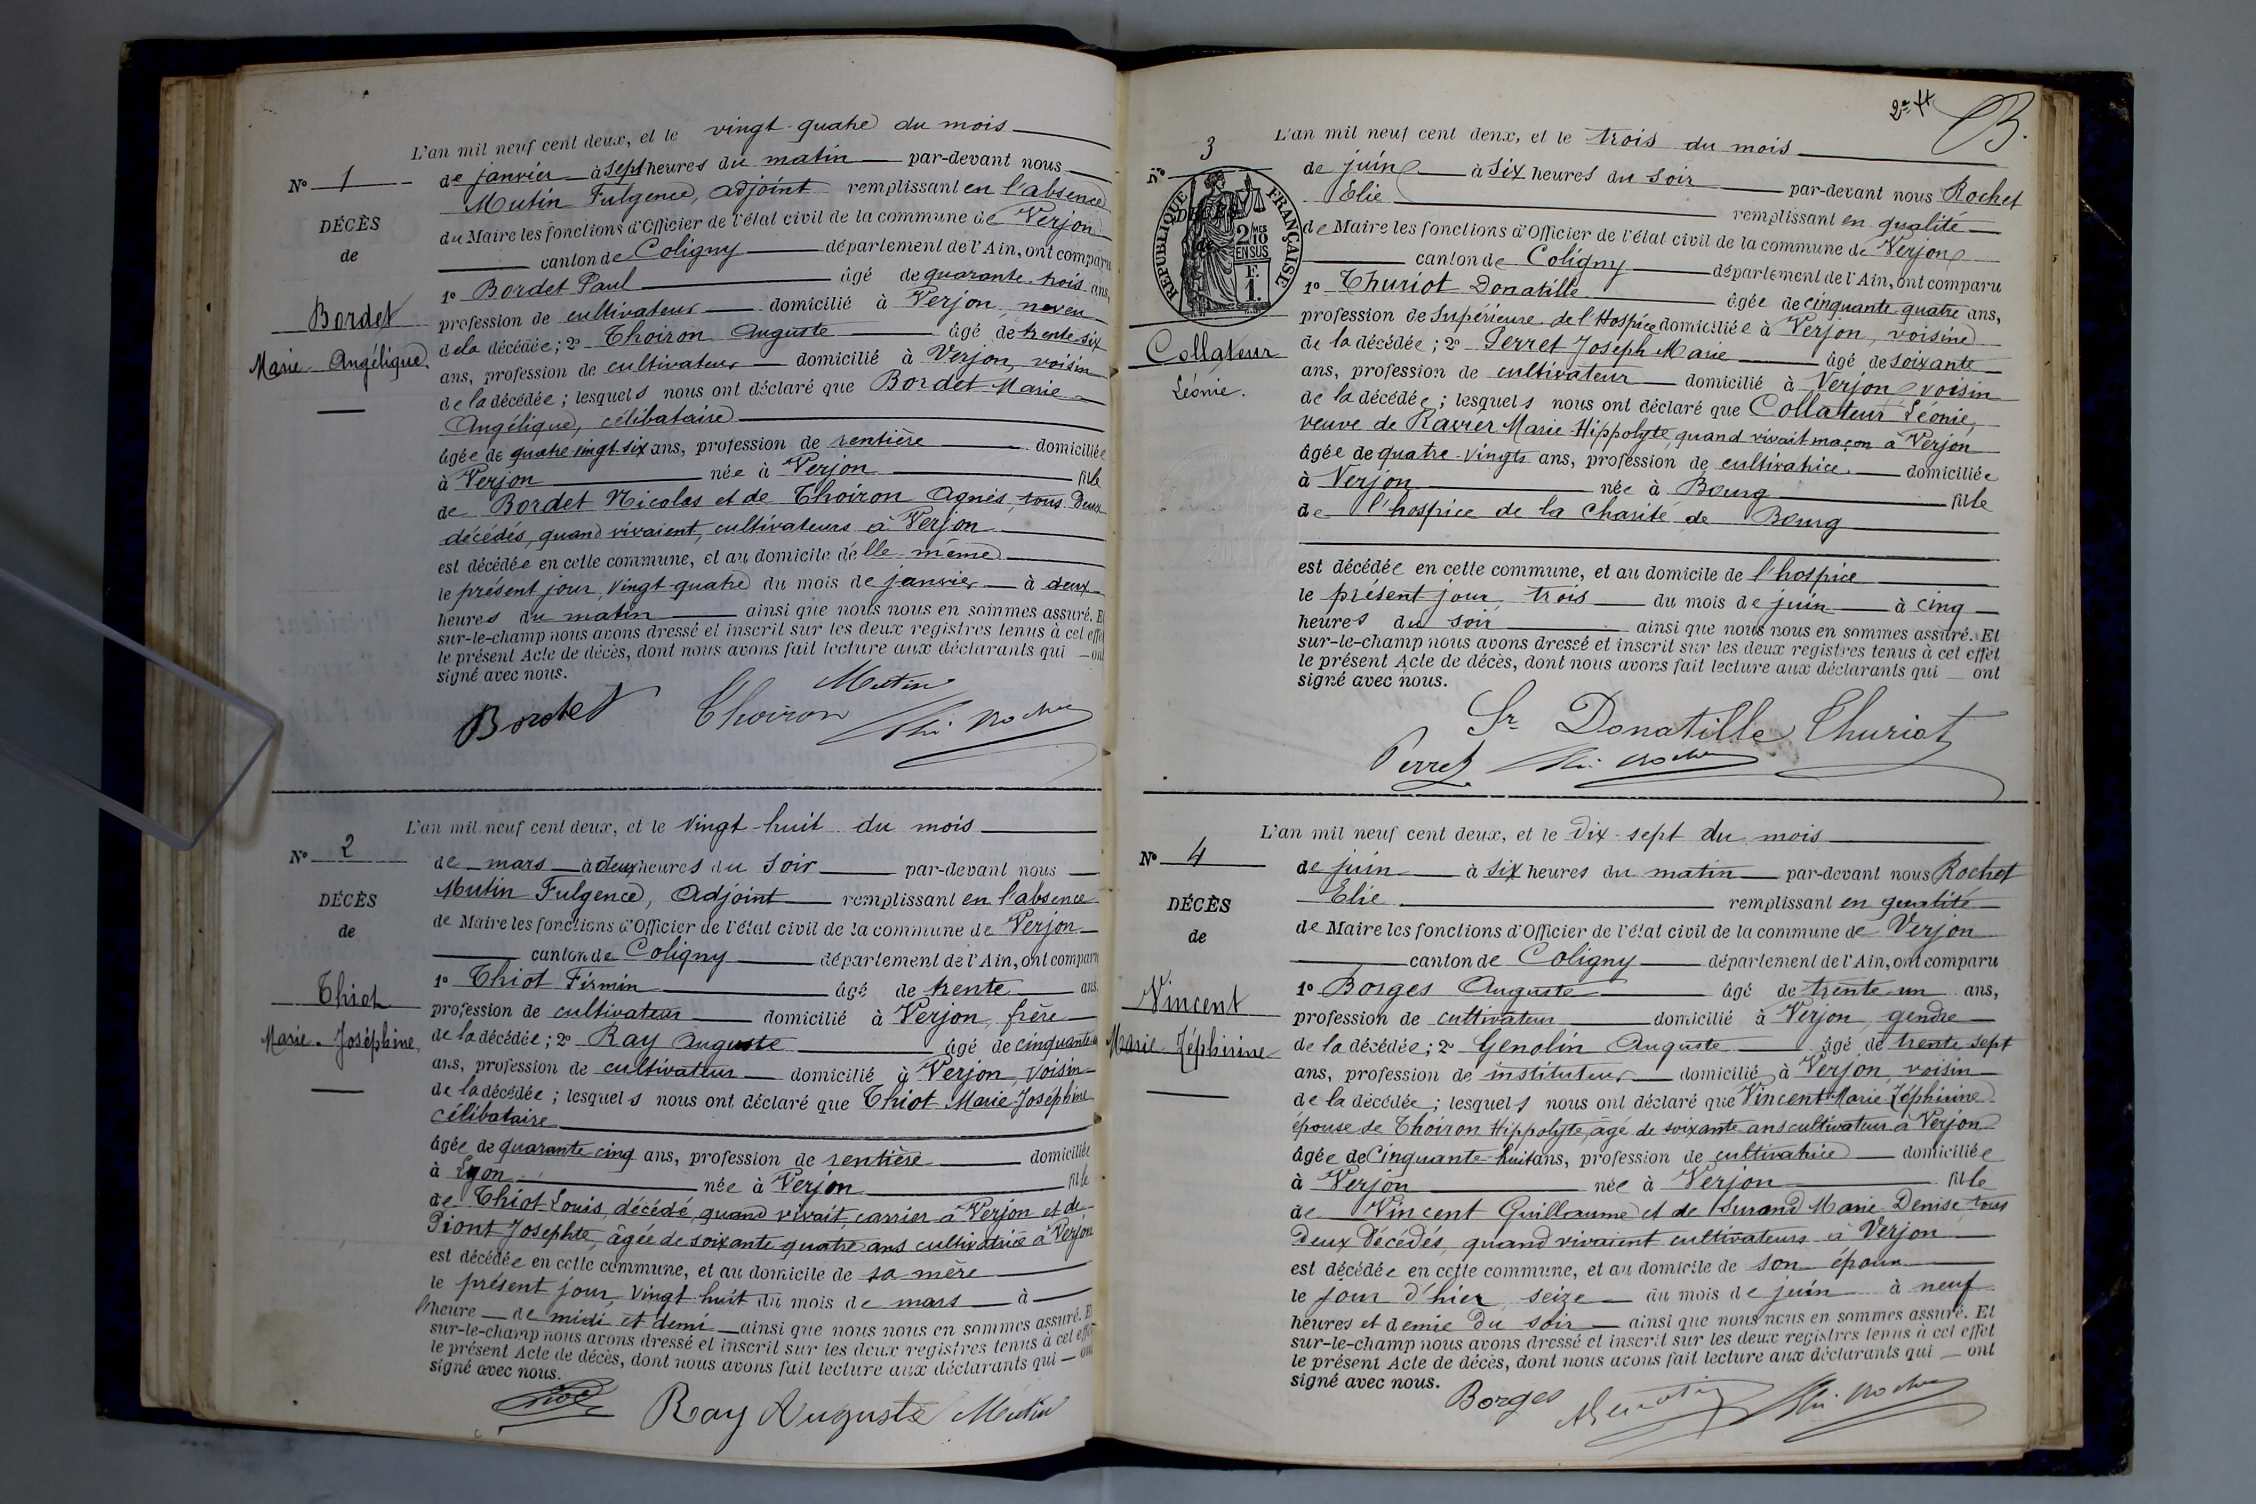 L'an mil neuf cent deux, et le vingt-quatre du mois
N° 1
de janvier à sept heures du matin par-devant nous
Mutin Fulgence, adjoint remplissant en l'absence
DÉCÈS
du Maire les fonctions d'Officier de l'état civil de la commune de Verjon
de
canton de Coligny département de l'Ain, ont comparu
1° Bordet Paul âgé de quarante-trois ans,
Bordet
profession de cultivateur domicilié à Verjon, neveu
Marie Angélique.
de la décédée; 2° Thoiron Auguste âgé de trente six
ans, profession de cultivateur domicilié à Verjon, voisin
de la décédée; lesquels nous ont déclaré que Bordet Marie
Angélique, célibataire
âgée de quatre vingt-six ans, profession de rentière domiciliée
à Verjon née à Verjon fille
de Bordet Nicolas et de Thoiron Agnès, tous deux
décédés, quand vivaient, cultivateurs à Verjon
est décédée en cette commune, et au domicile d'elle-même
le présent jour, vingt-quatre du mois de janvier à deux
heures du matin ainsi que nous nous en sommes assuré. Et
sur-le-champ nous avons dressé et inscrit sur les deux registres tenus à cet effet
le présent Acte de décès, dont nous avons fait lecture aux déclarants qui ont
signé avec nous.
Mutin
Bordet Thoiron Elie Rochet
L'an mil neuf cent deux, et le vingt-huit du mois
N° 2
de mars à deux heures du soir par-devant nous
Mutin Fulgence, Adjoint remplissant en l'absence
DÉCÈS
de Maire les fonctions d'Officier de l'état civil de la commune de Verjon
de
canton de Coligny département de l'Ain, ont comparu
1° Thiot Firmin âgé de trente ans
Thiot
profession de cultivateur domicilié à Verjon, frère
Marie-Joséphine
de la décédée; 2° Ray Auguste âgé de cinquante
ans, profession de cultivateur domicilié à Verjon, voisin
de la décédée; lesquels nous ont déclaré que Thiot Marie-Joséphine
célibataire
âgée de quarante cinq ans, profession de rentière domiciliée
à Lyon née à Verjon fille
de Thiot Louis, décédé, quand vivait, carrier à Verjon et de
Piont Josephte, âgée de soixante quatre ans cultivatrice à Verjon
est décédée en cette commune, et au domicile de sa mère
le présent jour, vingt-huit du mois de mars à
l'heure de midi et demi ainsi que nous nous en sommes assuré. Et
sur-le-champ nous avons dressé et inscrit sur les deux registres tenus à cet effet
le présent Acte de décès, dont nous avons fait lecture aux déclarants qui ont
signé avec nous.
Ray Auguste Mutin
2e ft
L'an mil neuf cent deux, et le trois du mois
N° 3
de juin à six heures du soir par-devant nous Rochet
Elie remplissant en qualité
RÉPUBLIQUE FRANÇAISE
2 MES
10
EN SUS
F.
1.
DÉCÈS
de Maire les fonctions d'Officier de l'état civil de la commune de Verjon
de
canton de Coligny département de l'Ain, ont comparu
1° Thuriot Donatille âgée de cinquante-quatre ans,
profession de Supérieure de l'Hospice domiciliée à Verjon, voisine
Collateur
de la décédée; 2° Perret Joseph Marie âgé de soixante
Léonie.
ans, profession de cultivateur domicilié à Verjon, voisin
de la décédée; lesquels nous ont déclaré que Collateur Léonie,
veuve de Ravier Marie-Hippolyte, quand vivait maçon à Verjon
âgée de quatre-vingts ans, profession de cultivatrice domiciliée
à Verjon née à Bourg fille
de l'hospice de la Charité de Bourg
est décédée en cette commune, et au domicile de l'hospice
le présent jour trois du mois de juin à cinq
heures du soir ainsi que nous nous en sommes assuré. Et
sur-le-champ nous avons dressé et inscrit sur les deux registres tenus à cet effet
le présent Acte de décès, dont nous avons fait lecture aux déclarants qui ont
signé avec nous.
Sr Donatille Thuriot
Perret Elie Rochet
L'an mil neuf cent deux, et le dix-sept du mois
N° 4
de juin à six heures du matin par-devant nous Rochet
Elie remplissant en qualité
DÉCÈS
de Maire les fonctions d'Officier de l'état civil de la commune de Verjon
de
canton de Coligny département de l'Ain, ont comparu
1° Borges Auguste âgé de trente-un ans,
Vincent
profession de cultivateur domicilié à Verjon, gendre
Marie-Zéphirine
de la décédée; 2° Genolin Auguste âgé de trente sept
ans, profession de instituteur domicilié à Verjon, voisin
de la décédée; lesquels nous ont déclaré que Vincent Marie Zéphirine
épouse de Thoiron Hippolyte, âgé de soixante ans cultivateur à Verjon
âgée de Cinquante-huit ans, profession de cultivatrice domiciliée
à Verjon née à Verjon fille
de Vincent Guillaume et de Surand Marie Denise tous
deux décédés, quand vivaient cultivateurs à Verjon
est décédée en cette commune, et au domicile de son époux
le jour d'hier seize du mois de juin à neuf
heures et demie du soir ainsi que nous nous en sommes assuré. Et
sur-le-champ nous avons dressé et inscrit sur les deux registres tenus à cet effet
le présent Acte de décès, dont nous avons fait lecture aux déclarants qui ont
signé avec nous.
Borges AGenolin Elie Rochet